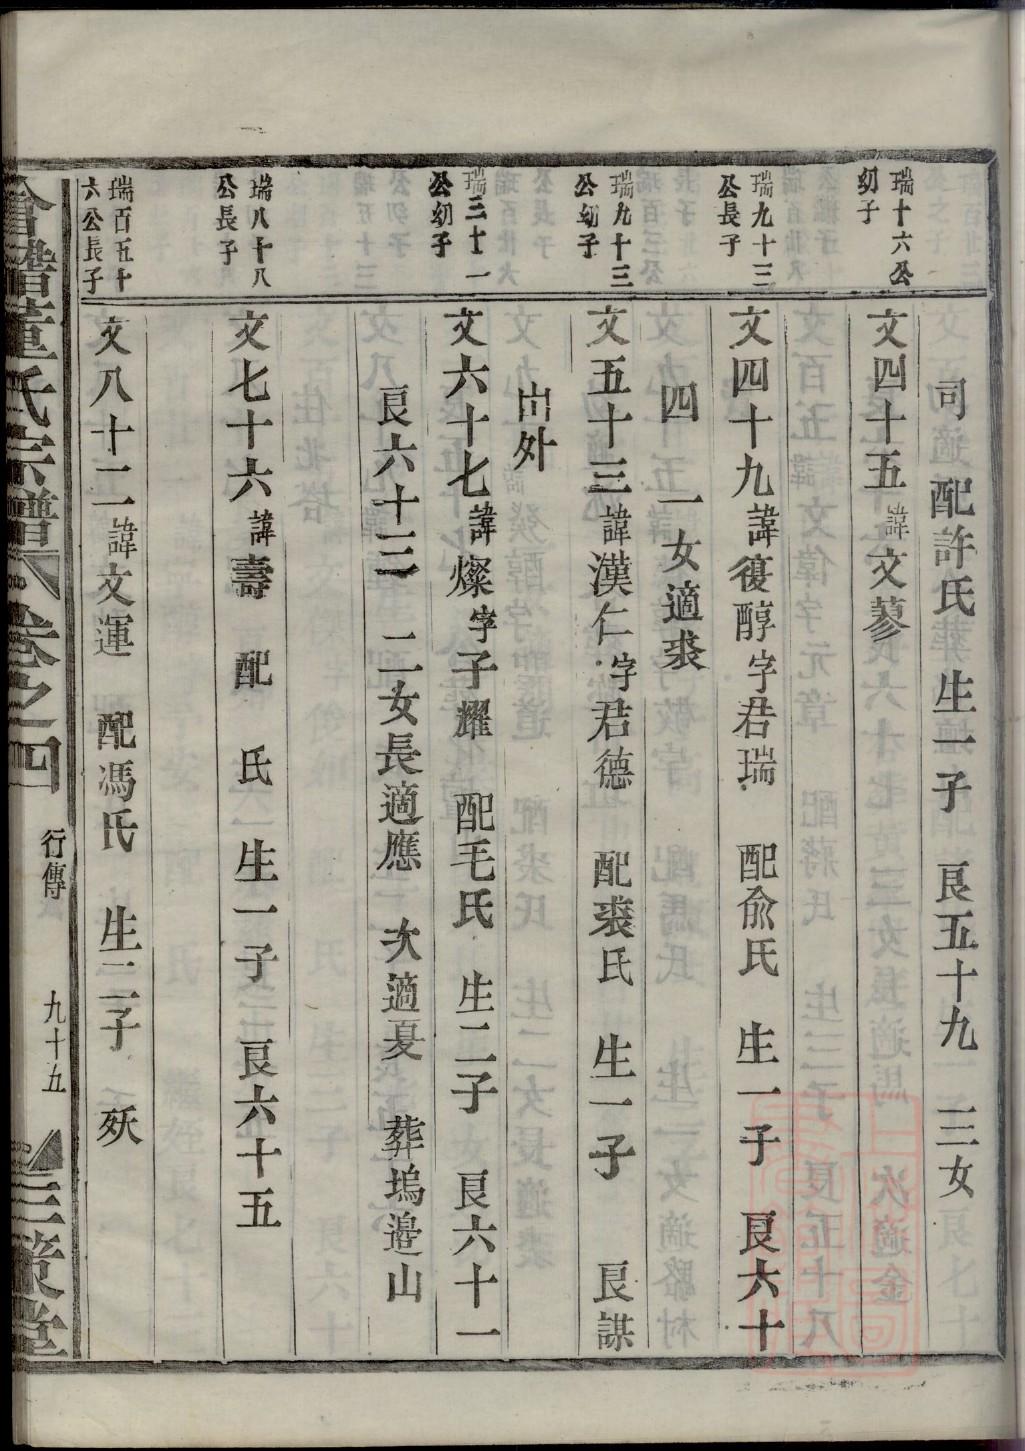 司　配許氏　生一子　良五十九　三女
瑞十六公
幼子
文四十五諱文蓼
瑞九十三
公長子
文四十九諱復醇字君瑞　配俞氏　生一子　良六十
四　一女適裘
瑞九十三
公幼子
文五十三諱漢仁字君德　配裘氏　生一子　良謀
出外
瑞三十一
公幼子
文六十七諱燦字子耀　配毛氏　生二子　良六十一
良六十三　二女長適應　次適夏　葬塢邉山
瑞八十八
公長子
文七十六諱壽　配　氏　生一子　良六十五
瑞百五十
六公長子
文八十二諱文運　配馮氏　生二子　殀
會稽董氏宗譜　卷之四　行傳　九十五　三策堂